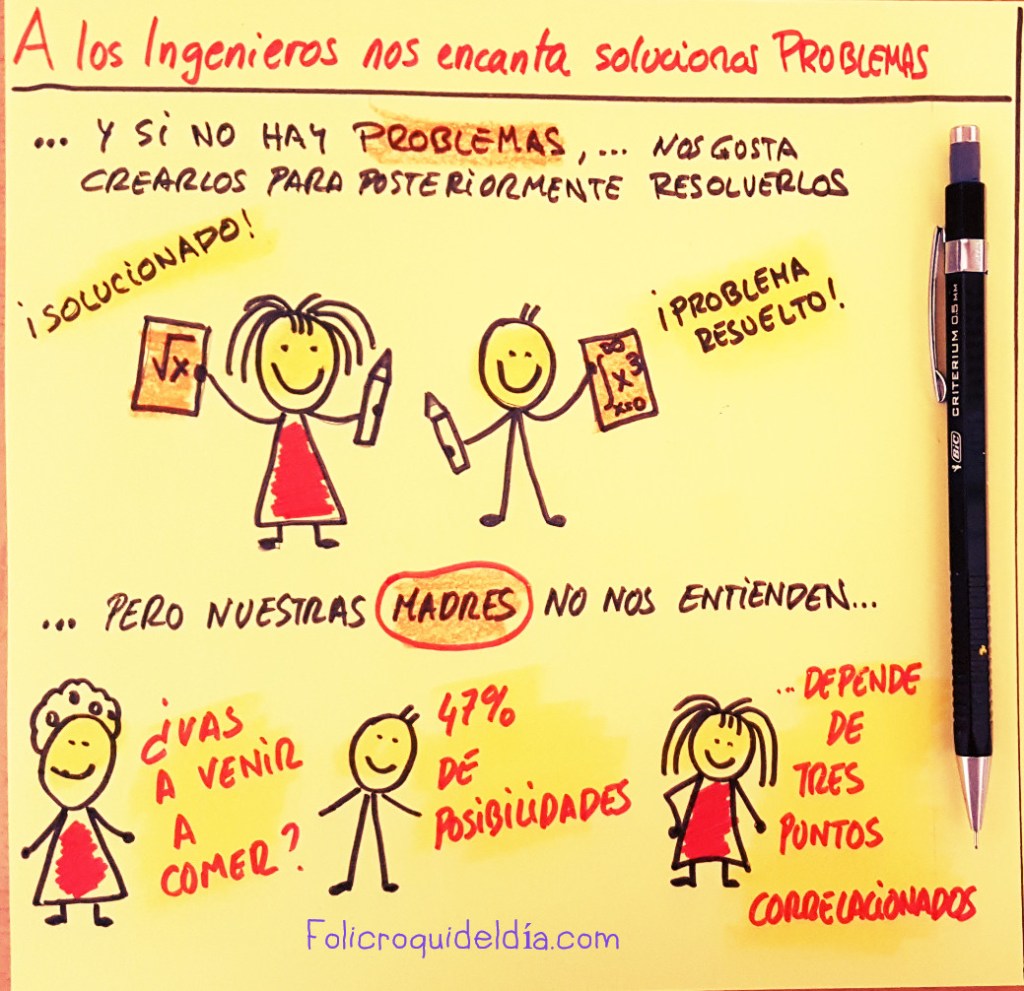 A los Ingenieros nos encanta solucionar PROBLEMAS
... Y Si NO HAY PROBLEMAS, ... NOS GOSTA
CREARLOS PARA POSTERiORMENTE RESOLVERLOS
¡SOLUCiONADO!
¡PROBLEMA
RESUELTO!
√x
∞
x³
x=0
CRITERIUM 0.5 MM
BIC
... PERO NUESTRAS MADRES NO NOS ENTiENDEN...
¿VAS
A VENiR
A
COMER?
47%
DE
POSiBiLiDADES
... DEPENDE
DE
TRES
PUNTOS
CORRELACiONADOS
Folicroquideldía.com